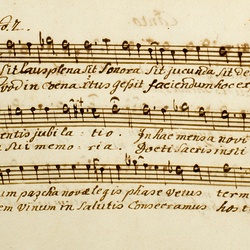 Sit laus plena Sit Sonora Sit jucunda Sit de
Quod in coena xstus gessit faciendum hoc ex
entis jubila - tio. In hac mensa novi
Sui memo - ria. Docti Sacris insti
um pascha novæ legis phase vetus term
em vinum in Salutis Consecramus host